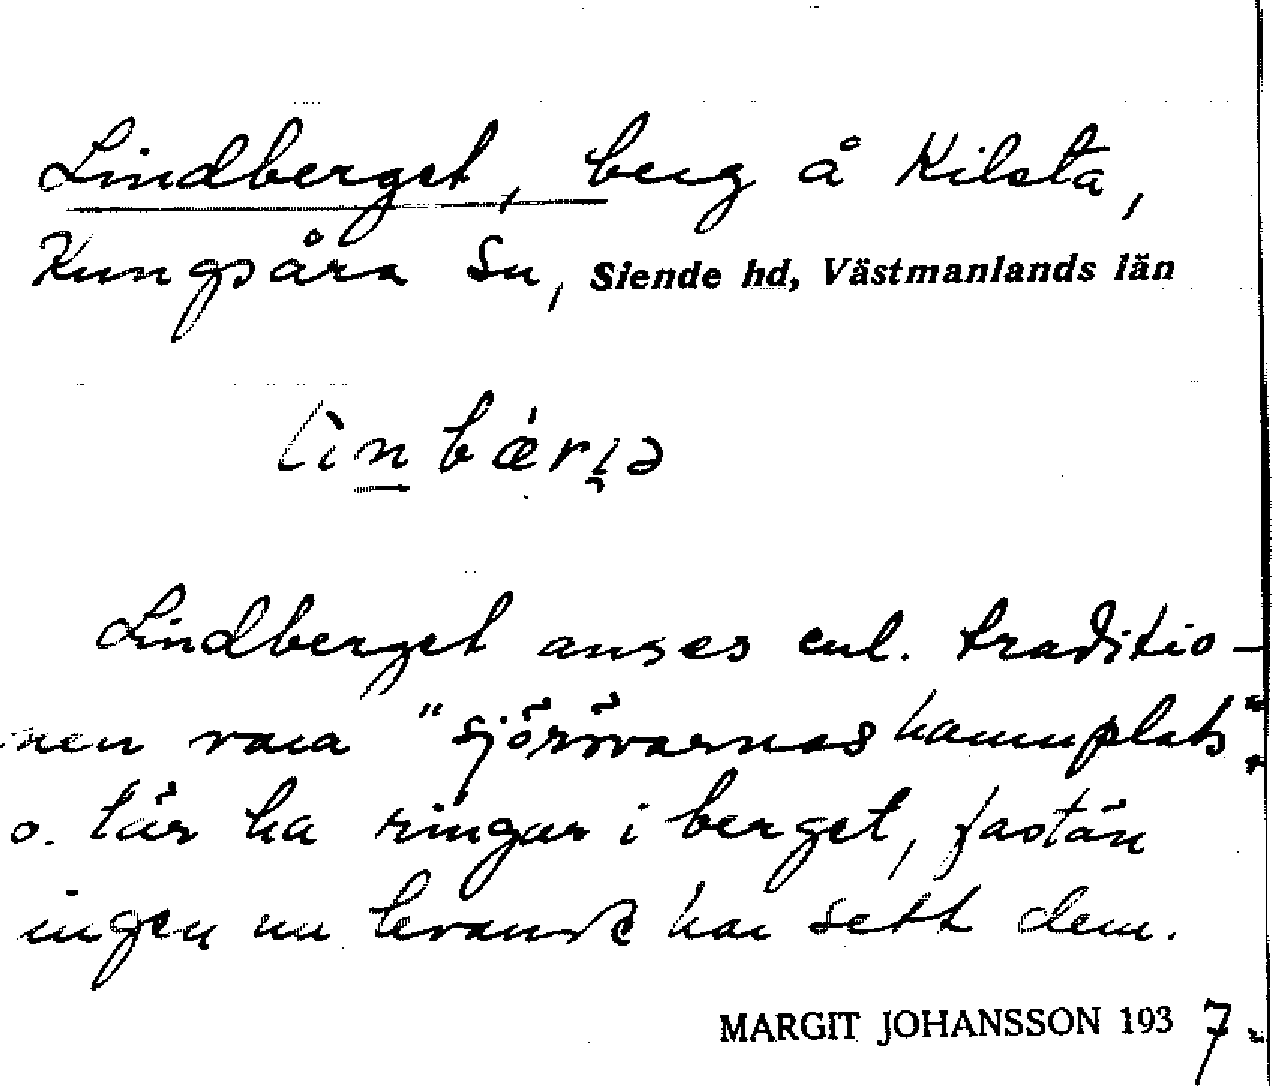 Lindberget, berg å Kilsta,
Kungsåra sn, Siende hd, Västmanlands län
lìnbǽri̯ə
Lindberget anses enl. traditio-
nen vara "sjörövarnas hamnplats".
o. lär ha ringar i berget, fastän
ingen nu levande har sett dem.
MARGIT JOHANSSON 1937.